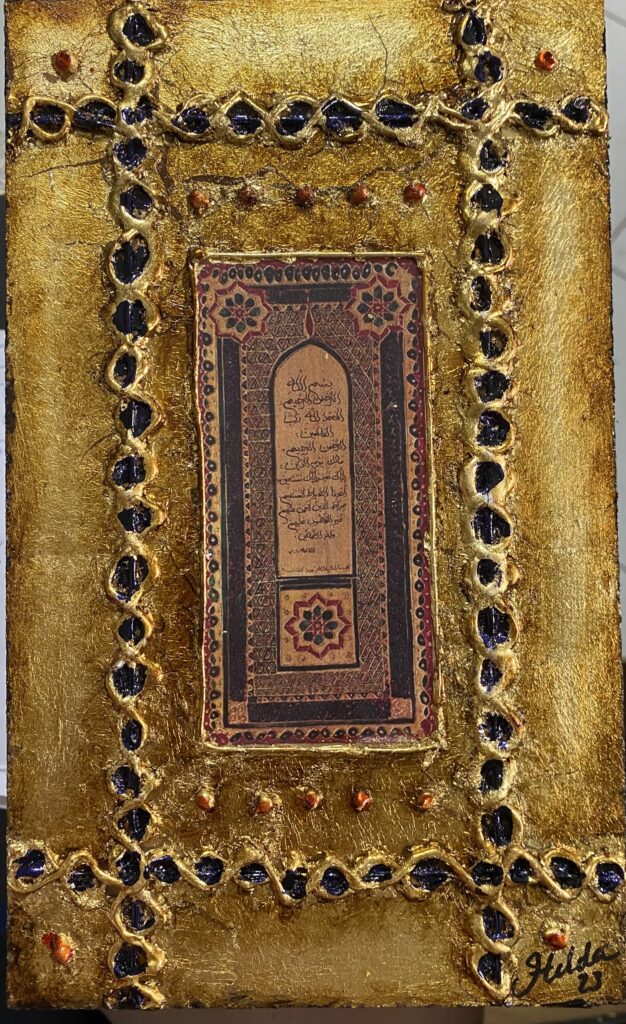 بسم الله
الرحمن الرحيم
الحمد لله رب
العالمين
الرحمن الرحيم
مالك يوم الدين
إياك نعبد وإياك نستعين
اهدنا الصراط المستقيم
صراط الذين أنعمت عليهم
غير المغضوب عليهم
ولا الضالين
Hilda
23